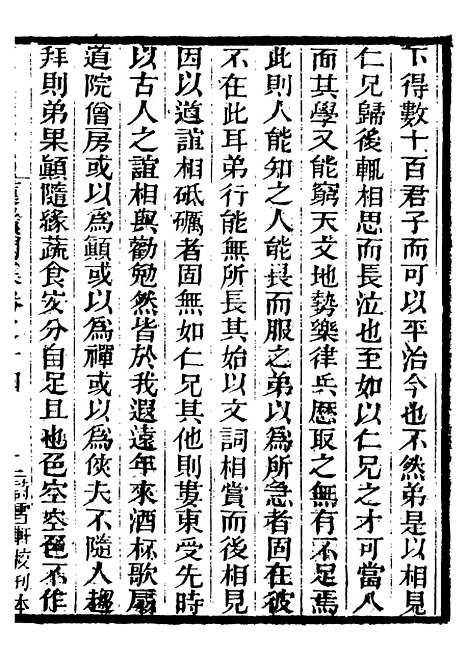 下得數十百君子而可以平治今也不然弟是以相見
仁兄歸後輒相思而長泣也至如以仁兄之才可當八
而其學又能窮天文地勢樂律兵歷取之無有不足焉
此則人能知之人能畏而服之弟以為所急者固在彼
不在此耳弟行能無所長其始以文詞相賞而後相見
因以道誼相砥礪者固無如仁兄其他則婁東受先時
以古人之誼相與勸勉然皆於我遐遠年來酒杯歌扇
道院僧房或以為顛或以為禪或以為俠夫不隨人趨
拜則弟果顛隨緣蔬食安分自足且也色空空色不作
卷之十四
十二詩雪軒校刊本